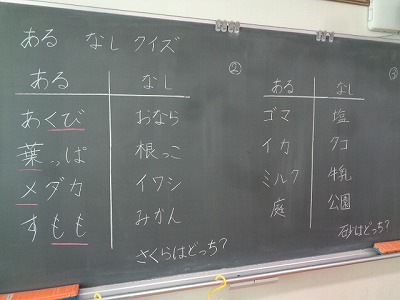 ある なし クイズ
ある なし
あくび おなら
葉っぱ 根っこ
メダカ イワシ
すもも みかん
さくらはどっち?
②
ある なし
ゴマ 塩
イカ タコ
ミルク 牛乳
庭 公園
砂はどっち?
③